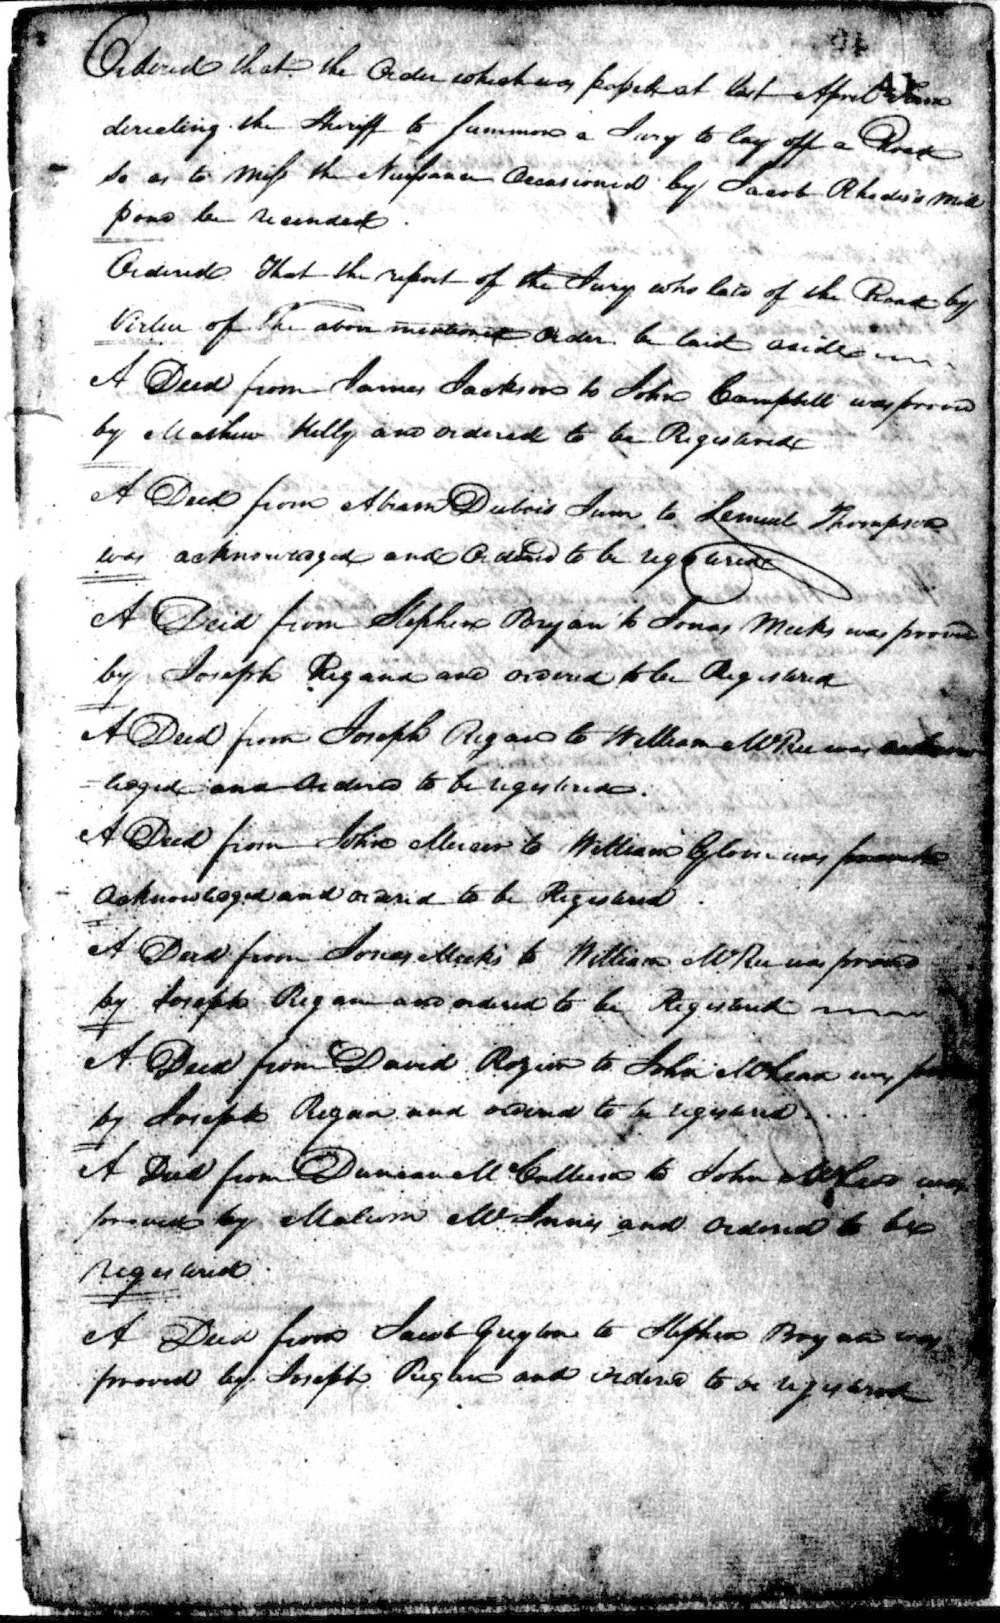 Ordered that the Order which was passed at last April Term
directing the Sheriff to summon a Jury to lay off a Road
so as to miss the Nuisance Occasioned by Jacob Rhodes's Mill
pond be recended.
Ordered That the report of the Jury who laid of the Road by
Virtue of The above mentioned Order be laid aside
A Deed from James Jackson to John Campbell was proved
by Mathew Kelly and ordered to be Registered
A Deed from Abram Dubois Junr to Lemuel Thompson
was acknowledged and Ordered to be registered
A Deed from Stephen Bryan to Jonas Meeks was proved
by Joseph Regan and ordered to be Registered
A Deed from Joseph Regan to William McRee was acknow
=ledged and Ordered to be registered.
A Deed from John Mercer to William was
acknowledged and ordered to be Registered.
A Deed from Jonas Meeks to William McRee was proved
by Joseph Regan and ordered to be Registered
A Deed from David Rozier to John McLean was
by Joseph Regan and ordered to be registered
A Deed from Duncan to John was
proved by Malcom McInnis and ordered to be
registered.
A Deed from Jacob to Stephen Bryan was
proved by Joseph Regan and ordered to be registered